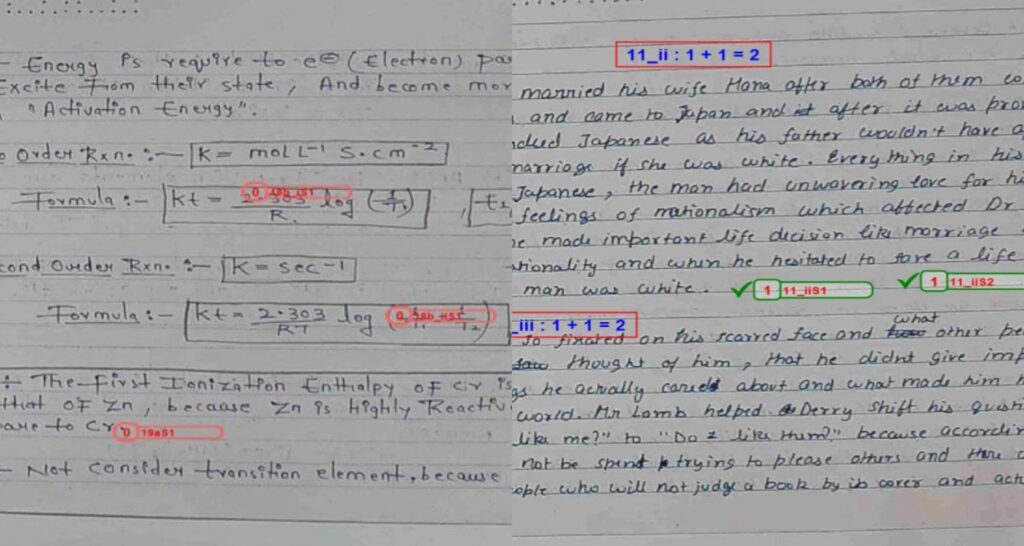 - Energy is require to e⊖ (Electron) pa
Excite From their state, And become mor
"Activation Energy".
o Order Rxn. :- K = mol L⁻¹ S. cm⁻²
Formula :- kt = 2.303 / R. log
0
cond Ouder Rxn. :- K = sec⁻¹
Formula :- kt = 2.303 / RT log
0
÷ The First Ionization Enthalpy OF Cr is
that OF Zn, because Zn is Highly Reactiv
pare to Cr.
0 19aS1
- Not consider transition element, because
11_ii : 1 + 1 = 2
married his wife Hana after both of them co
and came to Japan and it after it was pro
Japanese as his father wouldn't have a
marriage if she was white. Everything in his
Japanese, the man had unwavering love for hi
feelings of nationalism which affected Dr
e made important life decision like marriage
tionality and when he hesitated to save a life
man was white.
1 11_iiS1
1 11_iiS2
_iii : 1 + 1 = 2
what
so fixated on his scarred face and other pe
thought of him, that he didnt give imp
gs he actually cared about and what made him h
world. Mr Lamb helped Derry shift his questi
like me?" to "Do I like them?" because accordin
not be spent trying to please others and there
ople who will not judge a book by its cover and act